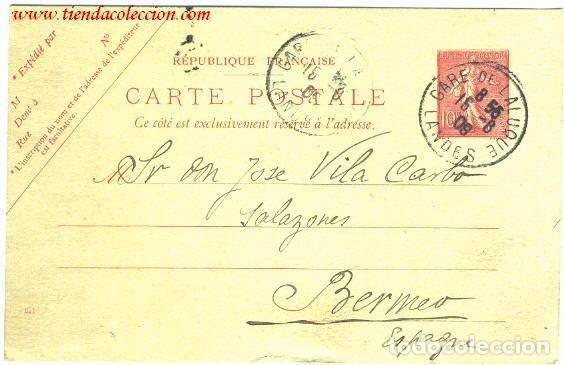 www.tiendacoleccion.com
* Expédié par
No
M
Demt à
Rue
* L'inscription du nom et de l'adresse de l'expéditeur
est facultative.
RÉPUBLIQUE FRANÇAISE
CARTE POSTALE
Ce côté est exclusivement réservé à l'adresse.
GARE DE LALUQUE
8 55
16
LANDES
10
M Sr don Jose Vila Carbo
Salazones
Bermeo
Espagne
todocoleccion